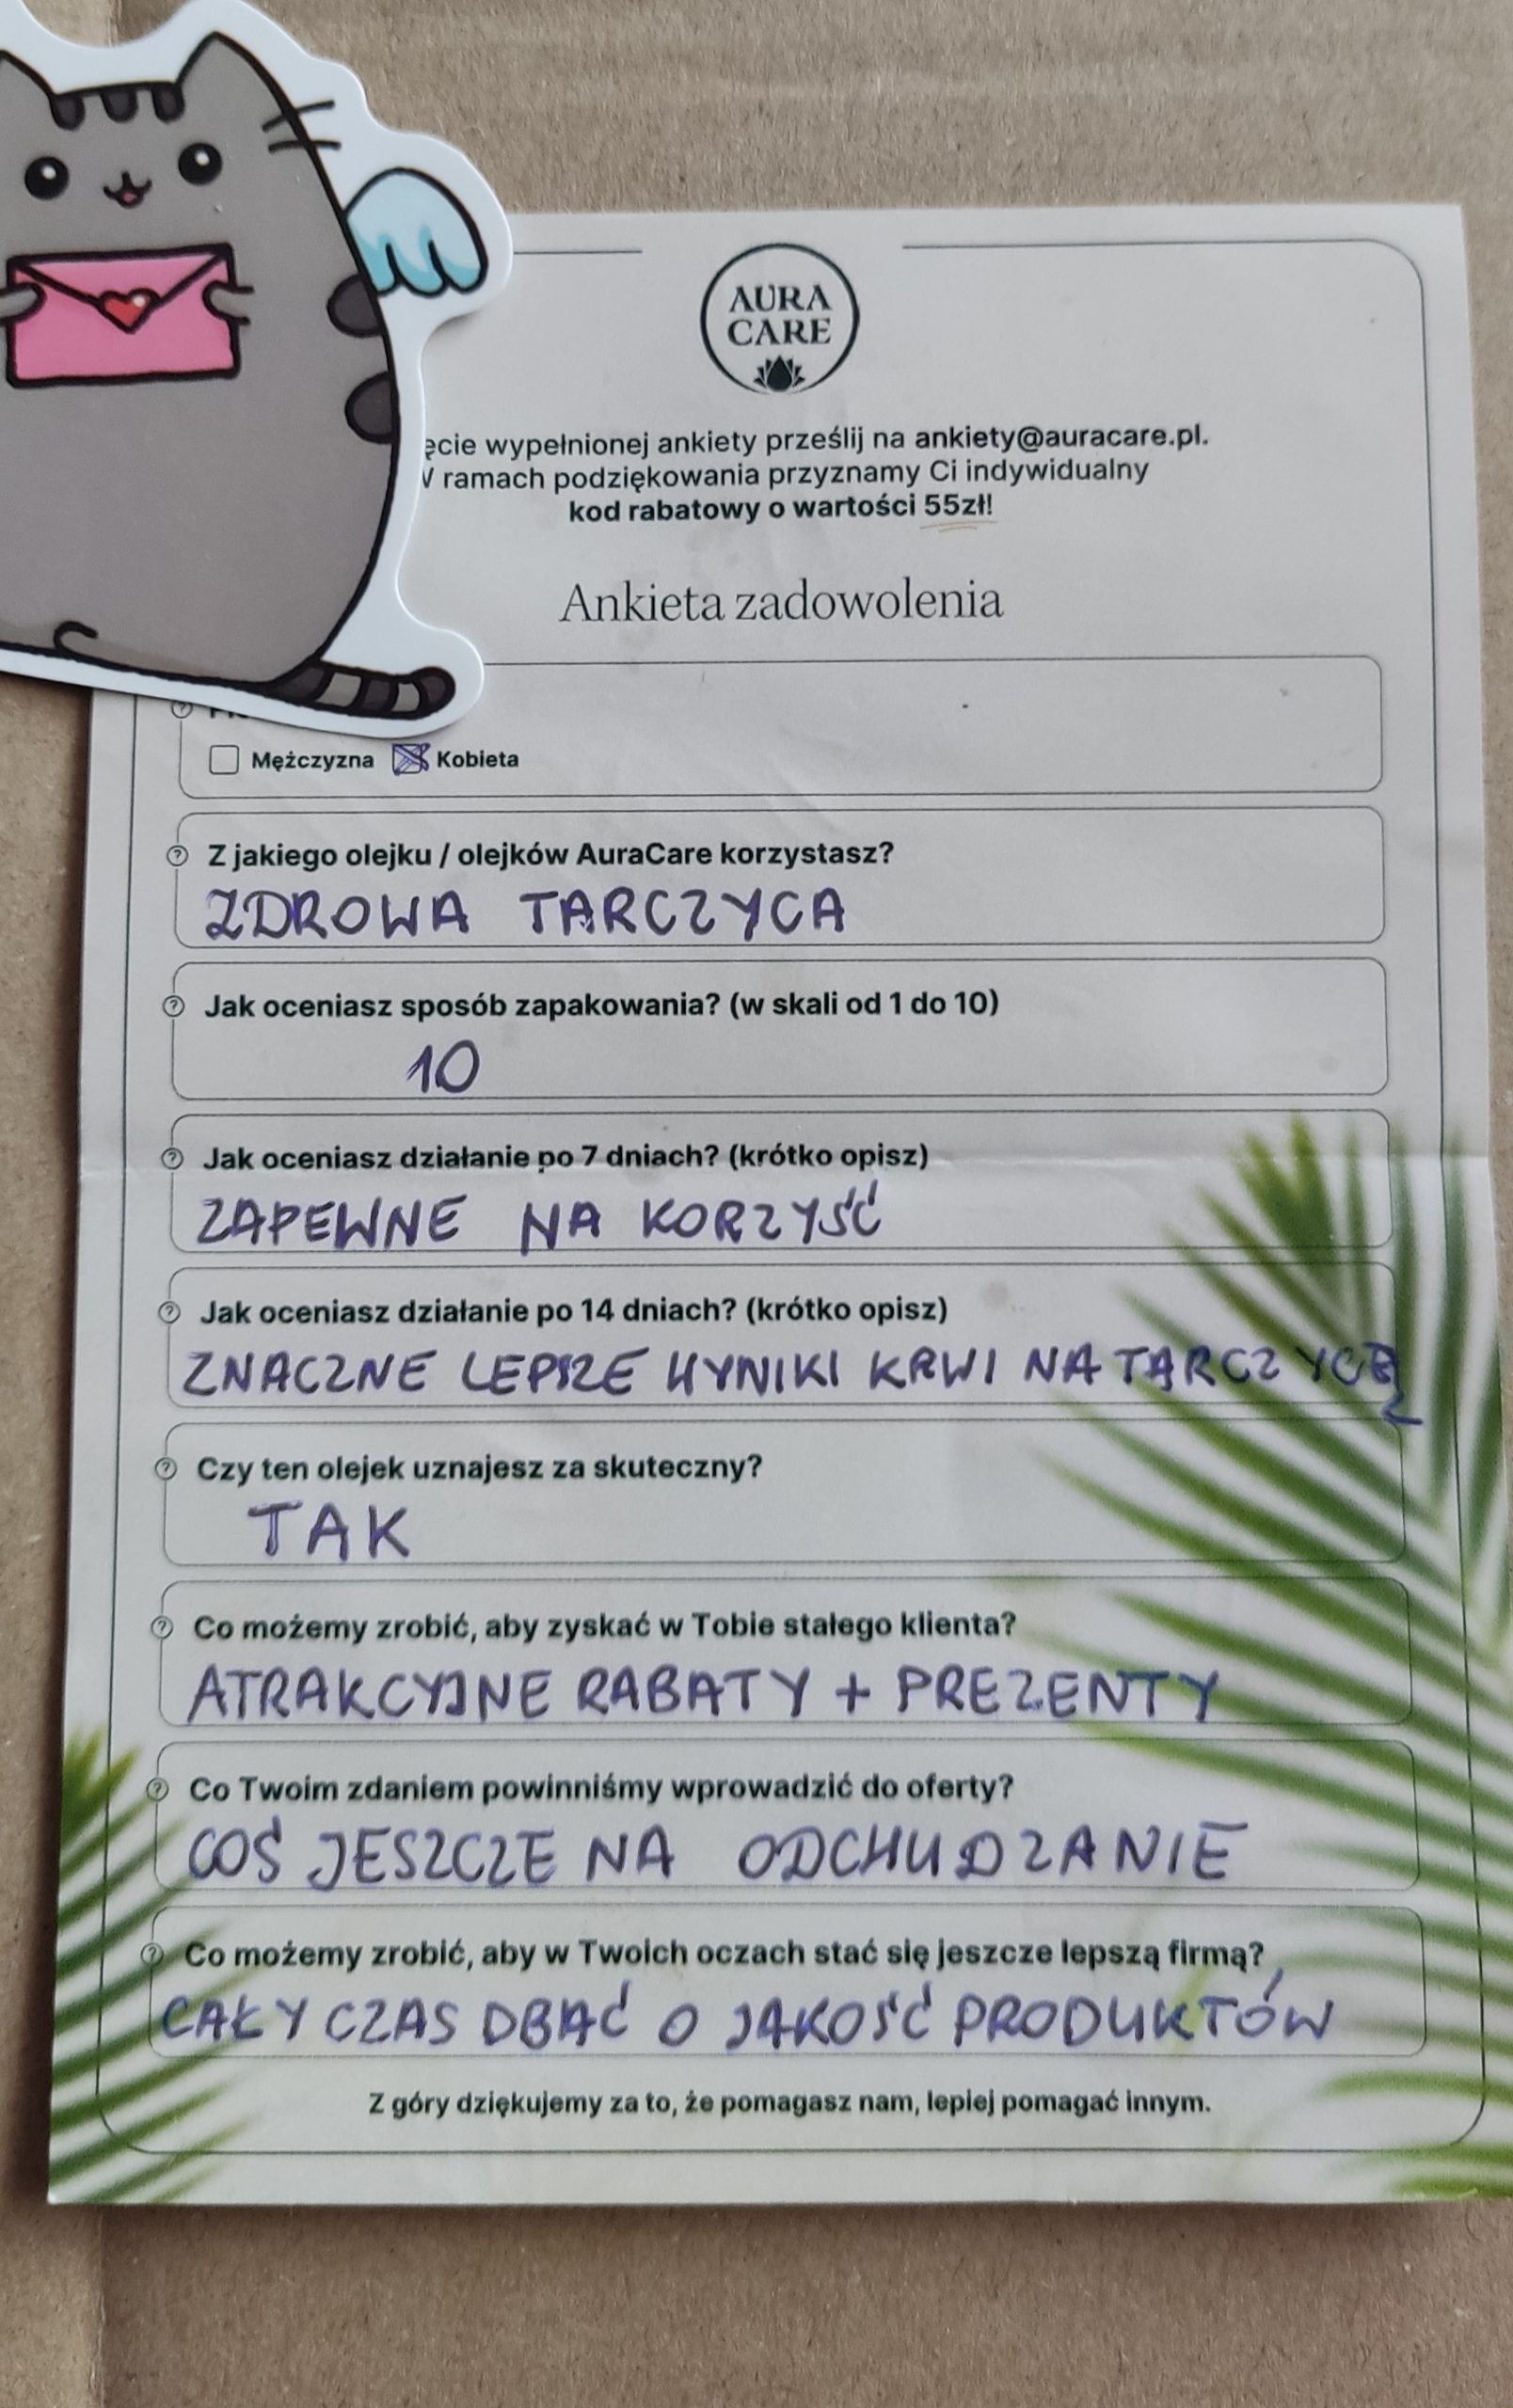 AURA
CARE
ęcie wypełnionej ankiety prześlij na ankiety@auracare.pl.
ramach podziękowania przyznamy Ci indywidualny
kod rabatowy o wartości 55zł!
Ankieta zadowolenia
Mężczyzna Kobieta
Z jakiego olejku / olejków AuraCare korzystasz?
ZDROWA TARCZYCA
Jak oceniasz sposób zapakowania? (w skali od 1 do 10)
10
Jak oceniasz działanie po 7 dniach? (krótko opisz)
ZAPEWNE NA KORZYŚĆ
Jak oceniasz działanie po 14 dniach? (krótko opisz)
ZNACZNE LEPSZE WYNIKI KRWI NA TARCZYCĘ
Czy ten olejek uznajesz za skuteczny?
TAK
Co możemy zrobić, aby zyskać w Tobie stałego klienta?
ATRAKCYJNE RABATY + PREZENTY
Co Twoim zdaniem powinniśmy wprowadzić do oferty?
COŚ JESZCZE NA ODCHUDZANIE
Co możemy zrobić, aby w Twoich oczach stać się jeszcze lepszą firmą?
CAŁY CZAS DBAĆ O JAKOŚĆ PRODUKTÓW
Z góry dziękujemy za to, że pomagasz nam, lepiej pomagać innym.